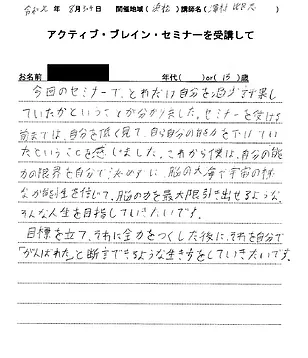 令和元年 8月31日 開催地域(浜松)講師名(澤村
アクティブ・ブレイン・セミナーを受講して
お名前 年代( )or( 15 )歳
今回のセミナーで、どれだけ自分を過小評価し
ていたかということが分かりました。セミナーを受ける
前までは、自分を低く見て、自ら自分の能力を下げてい
たということを感じました。これから僕は、自分の能
力の限界を自分で決めずに、脳の大海や宇宙の様
な可能性を信じて、脳の力を最大限引き出せるような、
そんな人生を目指していきたいです。
目標を立て、それに全力をつくした後に、それを自分で
「がんばれた」と断言できるような生き方をしていきたいです。